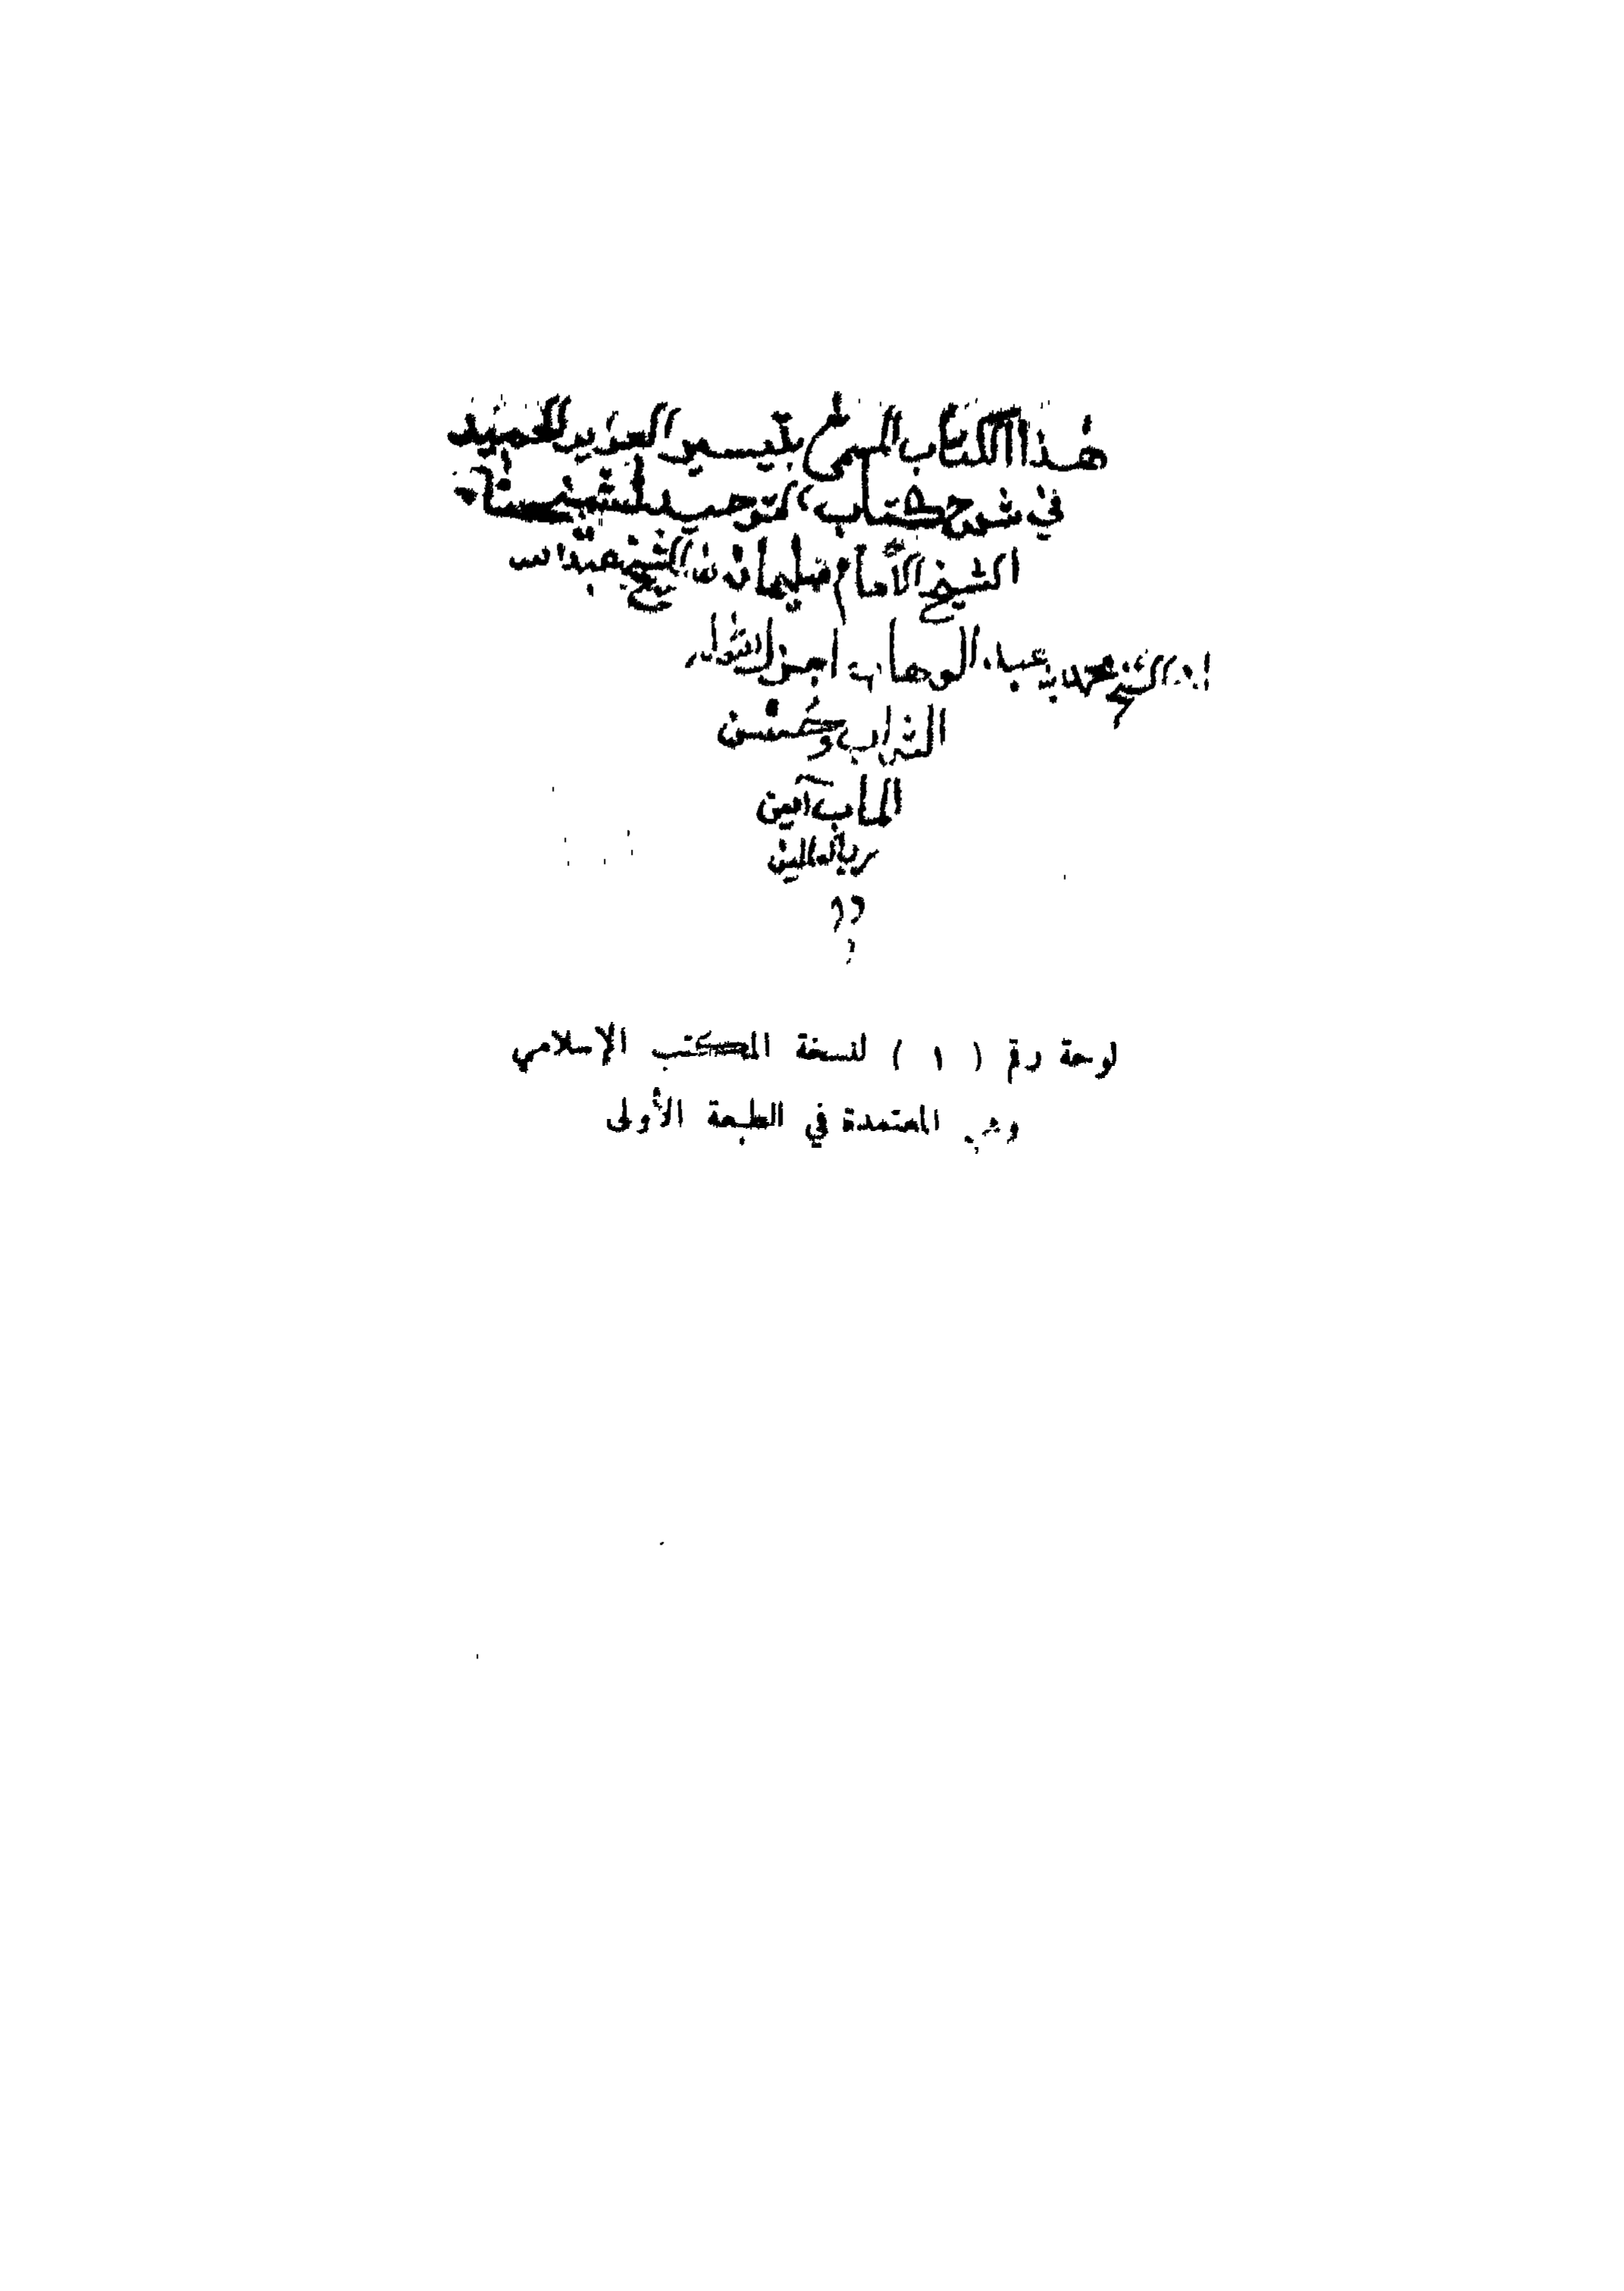 هذا الكتاب المسمى بتيسير العزيز الحميد
في شرح كتاب التوحيد للشيخ
الشيخ الأمام سليمان ابن الشيخ عبد الله
ابن الشيخ محمد بن عبد الوهاب اجزل الله له
الثواب وحسن
المآب آمين
رب العالمين
لوحة رقم ( ١ ) لنسخة المكتب الإسلامي
وهي المعتمدة في الطبعة الأولى